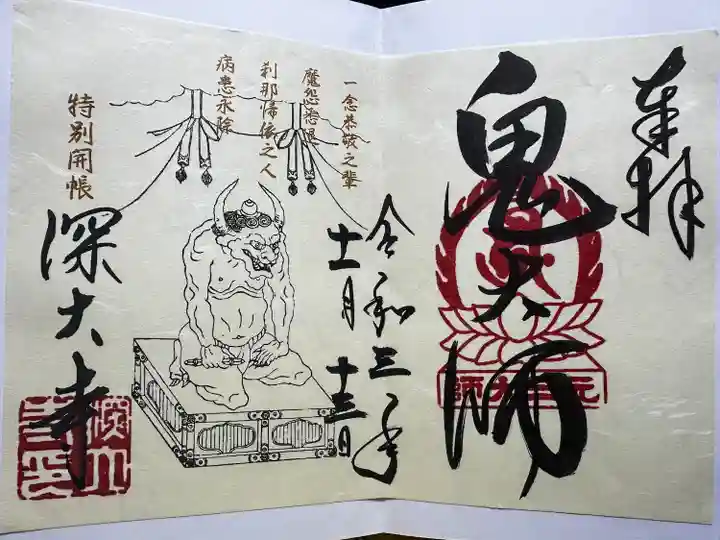 奉拝
鬼大師
元三大師
令和三年
十一月十三日
一念恭敬之輩
魔怨悉退
刹那帰依之人
病患永除
特別開帳
深大寺